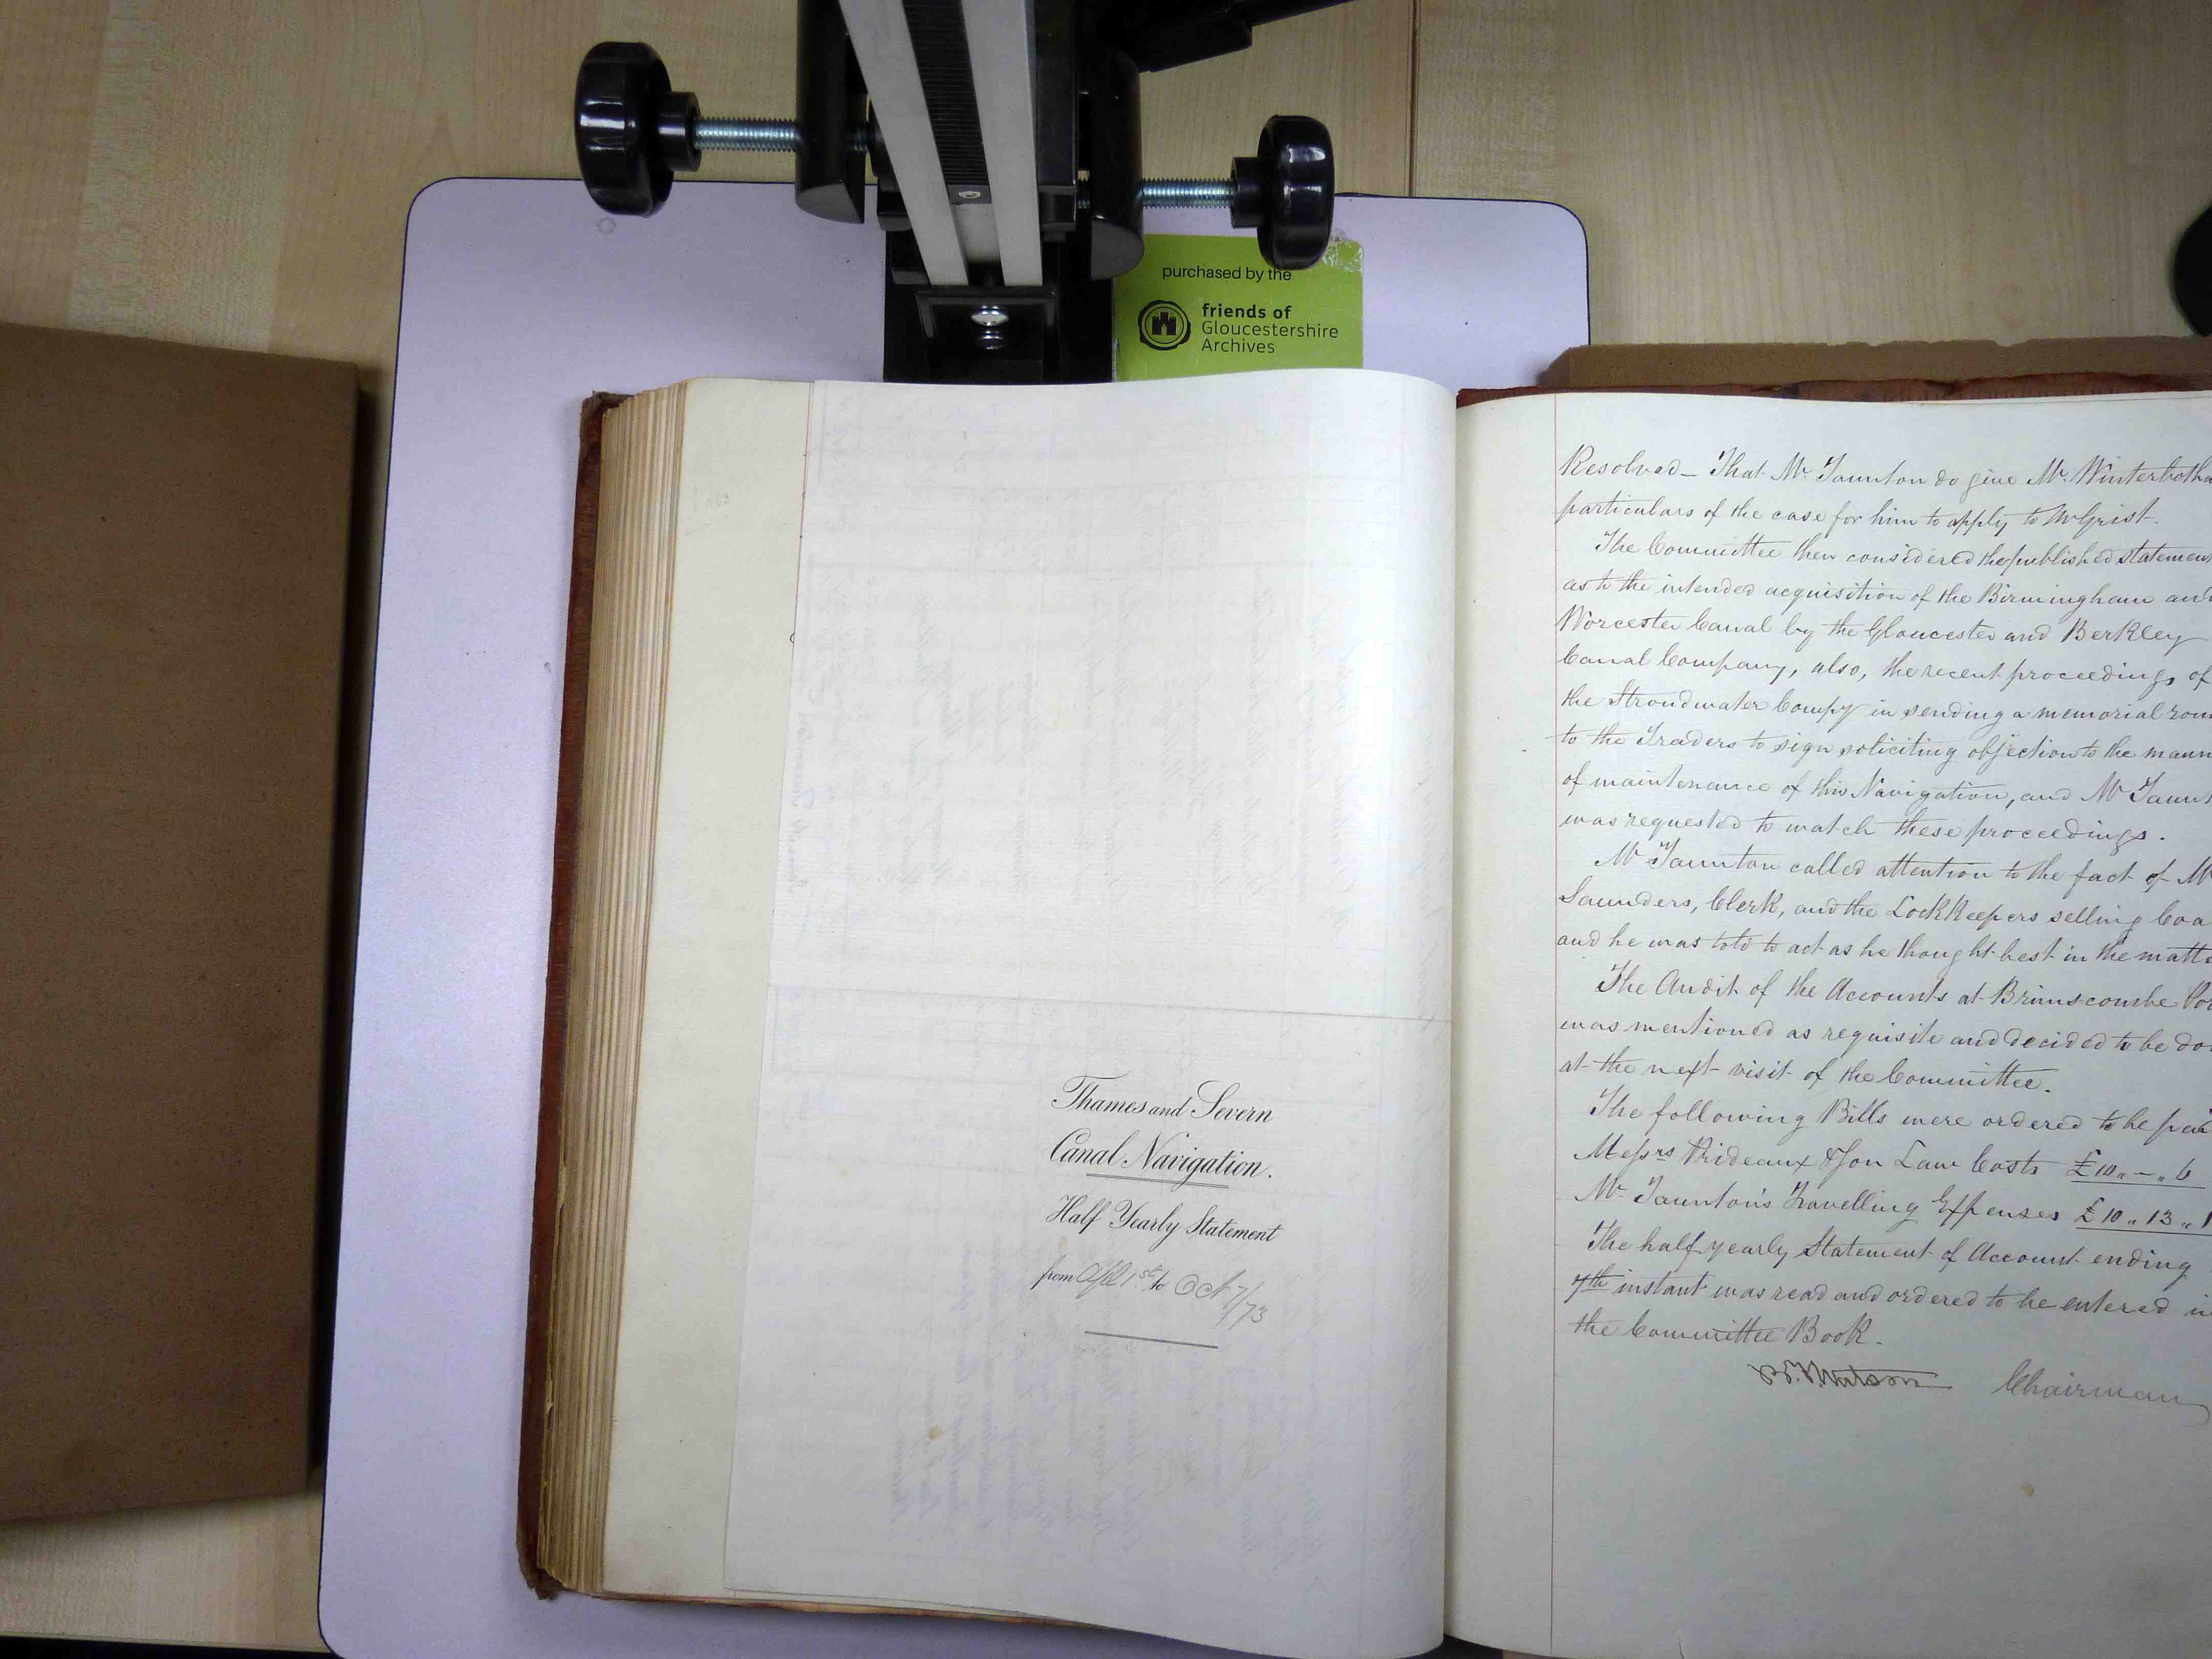 purchased by the
friends of
Gloucestershire
Archives
Thames and Severn
Canal Navigation.
Half Yearly Statement
from Apl 1st to Oct 7/73
Resolved_ That Mr. Taunton do give Mr. Winterbotha
particulars of the case for him to apply to Mr Grist.
The Committee then considered the published statemen
as to the intended acquisition of the Birmingham and
Worcester Canal by the Gloucester and Berkley
Canal Company, also, the recent proceedings of
the Stroudwater Compy in sending a memorial roun
to the Traders to sign soliciting objection to the mann
of maintenance of this Navigation, and Mr Taunt
was requested to watch these proceedings.
Mr Taunton called attention to the fact of M
Saunders, Clerk, and the Lock Keepers selling Coa
and he was told to act as he thought best in the matte
The Audit of the Accounts at Brimscombe Por
was mentioned as requisite and decided to be do
at the next visit of the Committee.
The following Bills were ordered to be pai
Messrs Prideaux & Son Law Costs £10,,-,,6
Mr. Taunton's Travelling Expenses £10,,13,,1
The half yearly Statement of Account ending
7th instant was read and ordered to be entered in
the Committee Book.
Chairman